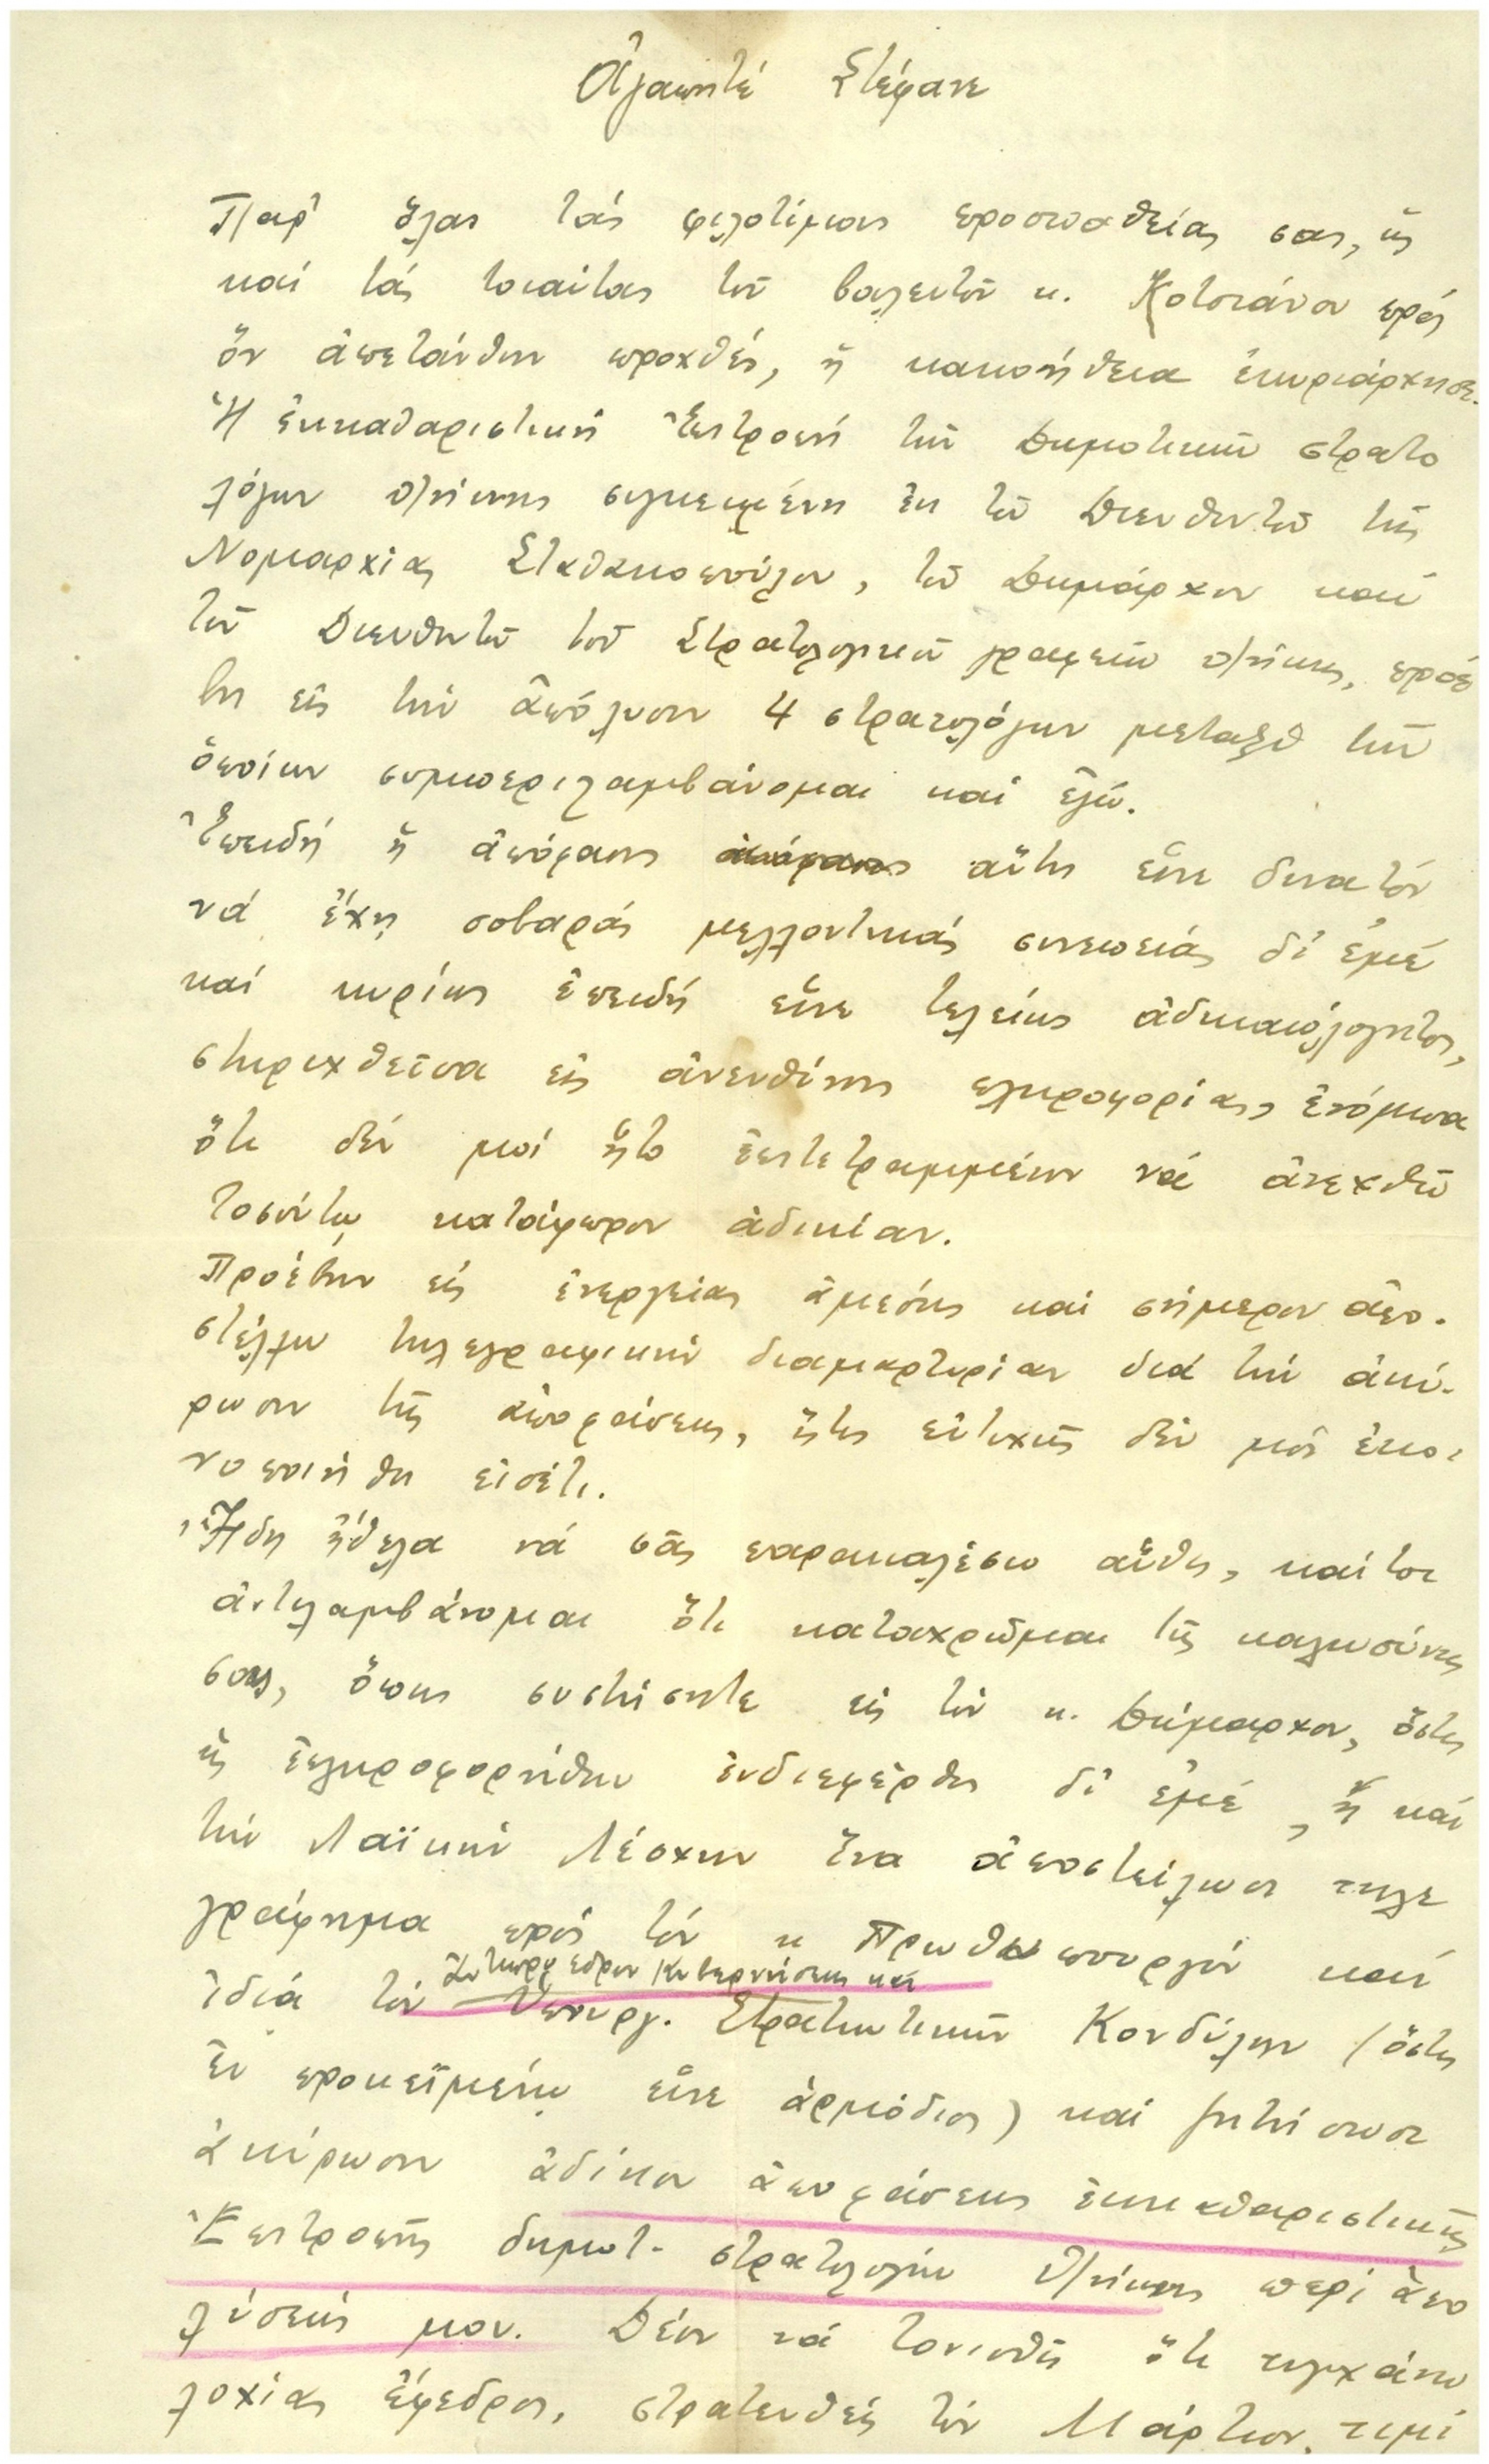 Ἀγαπητέ Στέφανε
Παρ' ὅλας τάς φιλοτίμους προσπαθείας σας, ὡς
καί τάς τοιαύτας τοῦ βουλευτοῦ κ. Κοτσιάνου πρός
ὅν ἀπετάνθην προχθές, ἡ κακοήθεια ἐκυριάρχησε.
Ἡ ἐκκαθαριστική Ἐπιτροπή τῶν Δημοτικῶν στρατο
λόγων Θράκης συγκειμένη ἐκ τοῦ Διευθυντοῦ τῆς
Νομαρχίας Σταθακοπούλου, τοῦ Δημάρχου καί
τοῦ Διευθυντοῦ τοῦ Στρατολογικοῦ γραφείου Θράκης, προέ
βη εἰς τήν ἀπόλυσιν 4 στρατολόγων μεταξύ τῶν
ὁποίων συμπεριλαμβάνομαι καί ἐγώ.
Ἐπειδή ἡ ἀπόφασις αὕτη εἶνε δυνατόν
νά ἔχῃ σοβαράς μελλοντικάς συνεπείας δι' ἐμέ
καί κυρίως ἐπειδή εἶνε τελείως ἀδικαιολόγητος,
στηριχθεῖσα εἰς ἀνευθύνους πληροφορίας, ἐνόμισα
ὅτι δέν μοί ἦτο ἐπιτετραμμένον νά ἀνεχθῶ
τοσούτῳ κατάφωρον ἀδικίαν.
Προέβην εἰς ἐνεργείας ἀμέσως καί σήμερον ἀπο-
στέλλω τηλεγραφικήν διαμαρτυρίαν διά τήν ἀκύ-
ρωσιν τῆς ἀποφάσεως, ἥτις εὐτυχῶς δέν μοί ἐκοι-
νοποιήθη εἰσέτι.
Ἤδη ἤθελα νά σᾶς παρακαλέσω αὖθις, καίτοι
ἀντιλαμβάνομαι ὅτι καταχρῶμαι τῆς καλωσύνης
σας, ὅπως συστήσητε εἰς τόν κ. Δήμαρχον, ὅστις
ὡς ἐπληροφορήθην ἐνδιεφέρθη δι' ἐμέ, ἤ καί
τήν Λαϊκήν Λέσχην ἵνα ἀποστείλωσι τηλε
γράφημα πρός τόν κ Πρωθυπουργόν καί
Ἀντιπρόεδρον Κυβερνήσεως καί
ἰδιά τόν Ὑπουργ. Στρατιωτικῶν Κονδύλην (ὅστις
ἐν προκειμένῳ εἶνε ἁρμόδιος) καί ζητήσωσι
ἀκύρωσιν ἀδίκου ἀποφάσεως ἐκκαθαριστικῆς
Ἐπιτροπῆς δημοτ. στρατολόγων Θράκης περί ἀπο
λύσεώς μου. Δέον νά τονισθῇ ὅτι τυγχάνω
λοχίας ἔφεδρος, στρατευθείς τόν Μάρτιον, τιμη